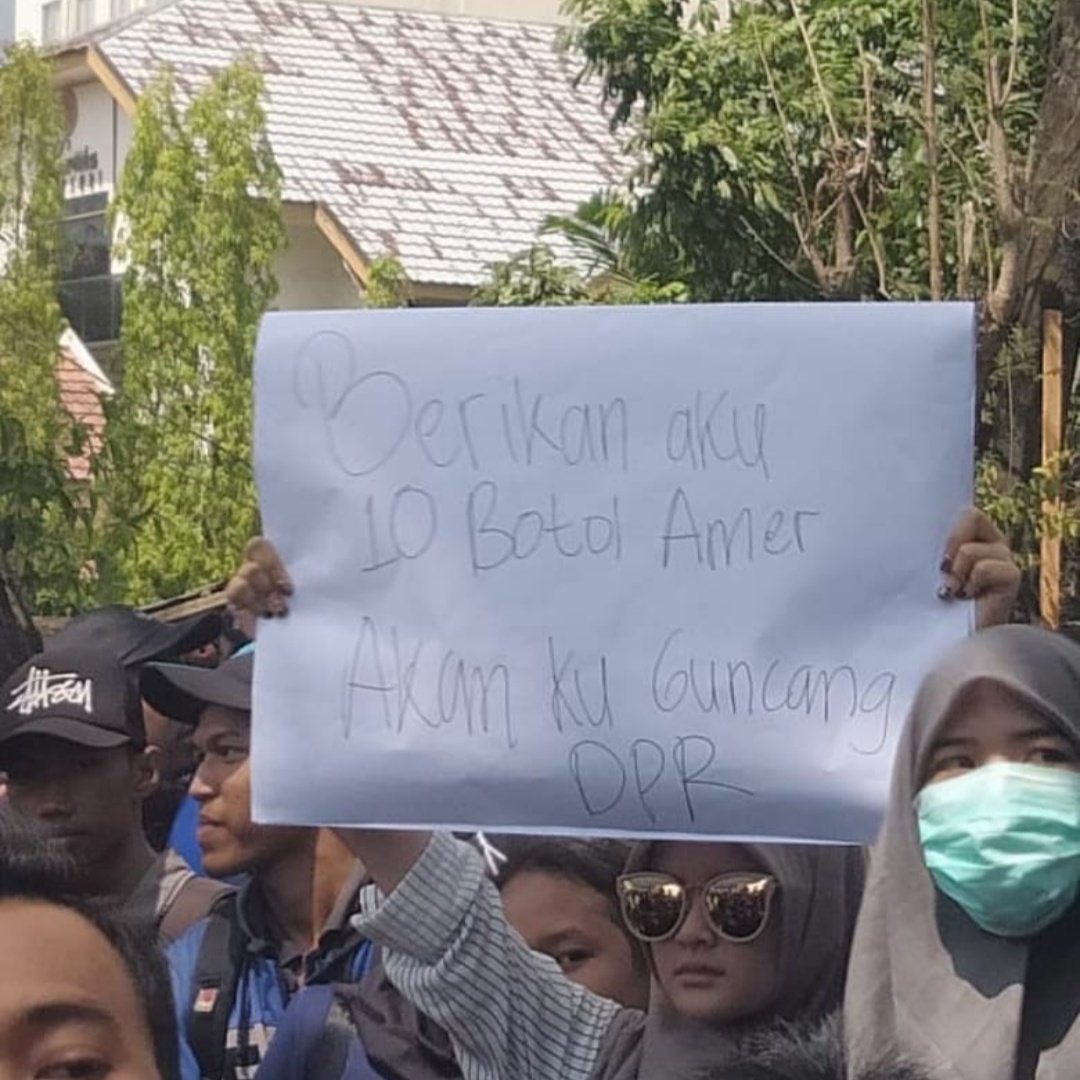 Berikan aku
10 Botol Amer
Akan ku Guncang
DPR